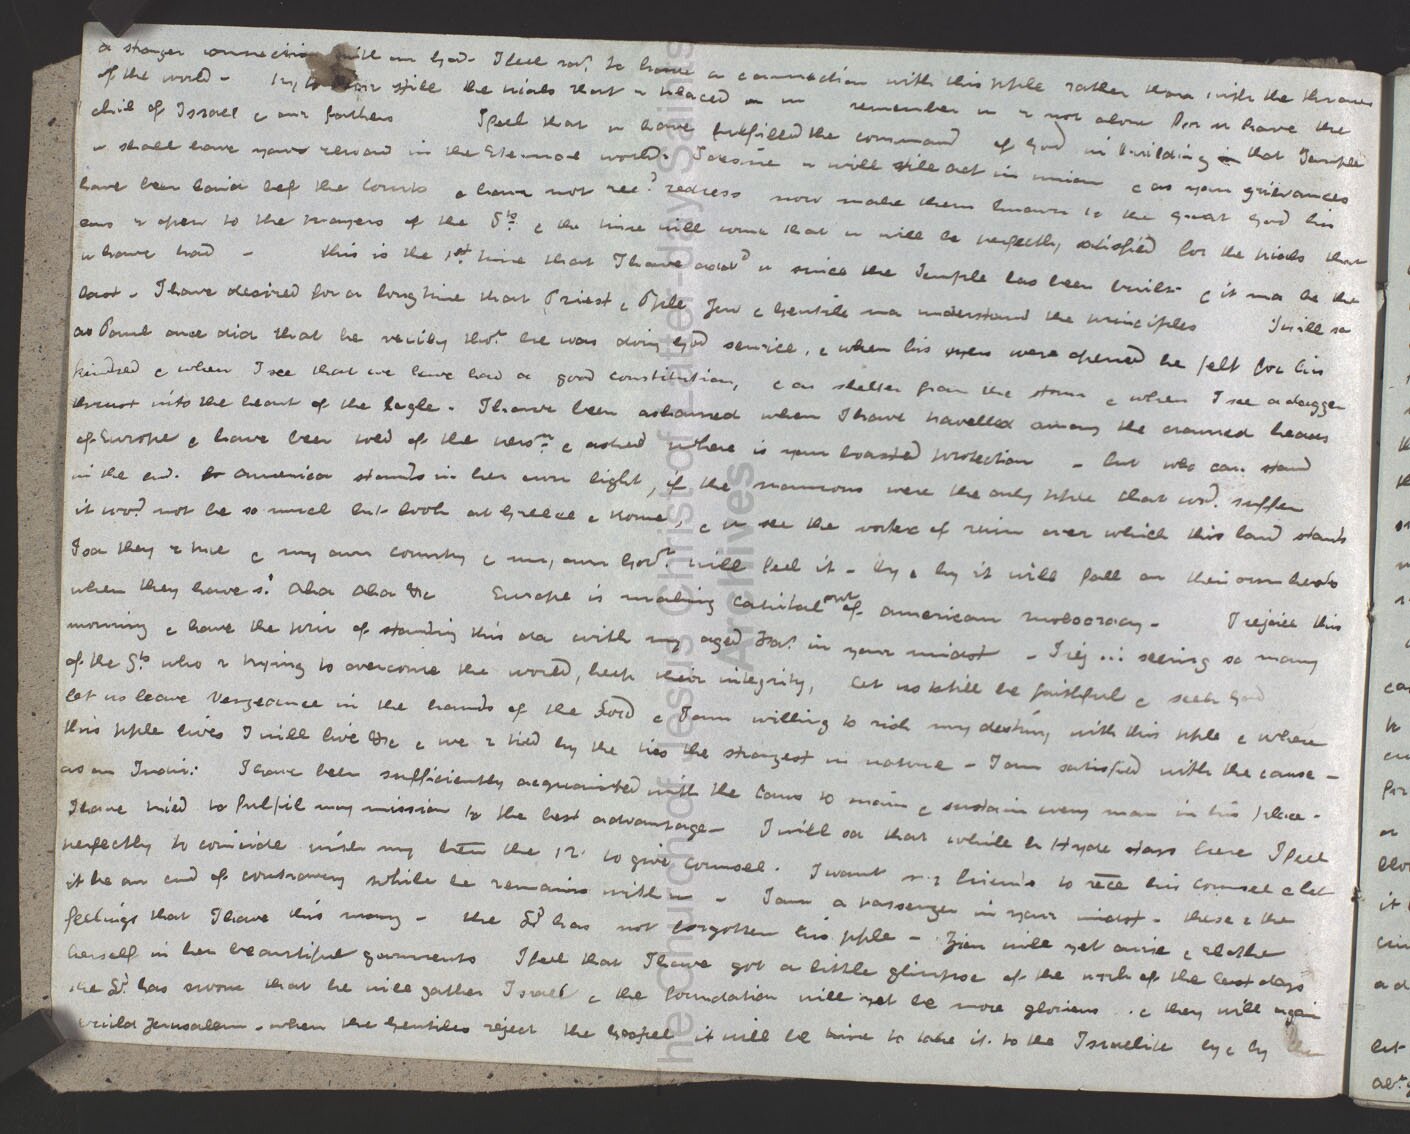 a stronger connection with our God. I feel rar. to have a connection with this pple rather than with the thrones
of the world - try to bear still the trials that r placed on u remember u r not alone for u have the
chil of Israel & our fathers I feel that u have fulfilled the command of God in building that Temple
u shall have your reward in the Eternal world. I desire u will still act in union & as your grievances
have been laid bef the Courts & have not recd. redress now make them known to the great God his
ears r open to the prayers of the Sts. & the time will come that u will be perfectly satisfied for the trials that
u have had - this is the 1st. time that I have addd u since the Temple has been built & it ma be the
last - I have desired for a long time that Priest & Pple Jew & Gentile ma understand the principles I will sa
as Paul once did that he verily thot. he was doing God service, & when his eyes were opened he felt for his
kindred & when I see that we have had a good constitution, & as shelter from the storm & when I see a dagger
thrust into the heart of the Eagle - I have been ashamed when I have travelled among the crowned heads
of Europe & have been told of the persn. & asked where is your boasted protection - but who can stand
in the end. America stands in her own light, if the mormons were the only pple that wod. suffer
it wod. not be so much but look at Greece & Rome, & u see the vortex of ruin over which this land stands
I sa they r true & my own country & my own Govt. will feel it - by & by it will fall on their own heads
when they have sd. aha aha &c Europe is making capital out of American mobocracy - I rejoice this
morning & have the priv of standing this da with my aged Far. in your midst - I rej ... seeing so many
of the Sts who r trying to overcome the world, keep their integrity, let us still be faithful & seek God
let us leave Vengeance in the hands of the Lord & I am willing to risk my destiny with this pple & where
this pple lives I will live &c & we r tied by the ties the strongest in nature - I am satisfied with the cause -
as an Indivi: I have been sufficiently acquainted with the laws to main & sustain every man in his place -
I have tried to fulfil my mission to the best advantage - I will sa that while br Hyde stays here I feel
perfectly to coincide with my bren the 12. to give counsel. I want my friends to rece his counsel & let
it be an end of controversy while he remains with u - I am a passenger in your midst - these r the
feelings that I have this morng - the Ld. has not forgotten his pple - Zion will yet arise & clothe
herself in her beautiful garments I feel that I have got a little glimpse of the work of the last days
the Ld. has sworn that he will gather Israel & the foundation will yet be more glorious & they will again
build Jerusalem - when the Gentiles reject the gospel it will be time to take it to the Israelite by & by the
The Church of Jesus Christ of Latter-day Saints
Archives